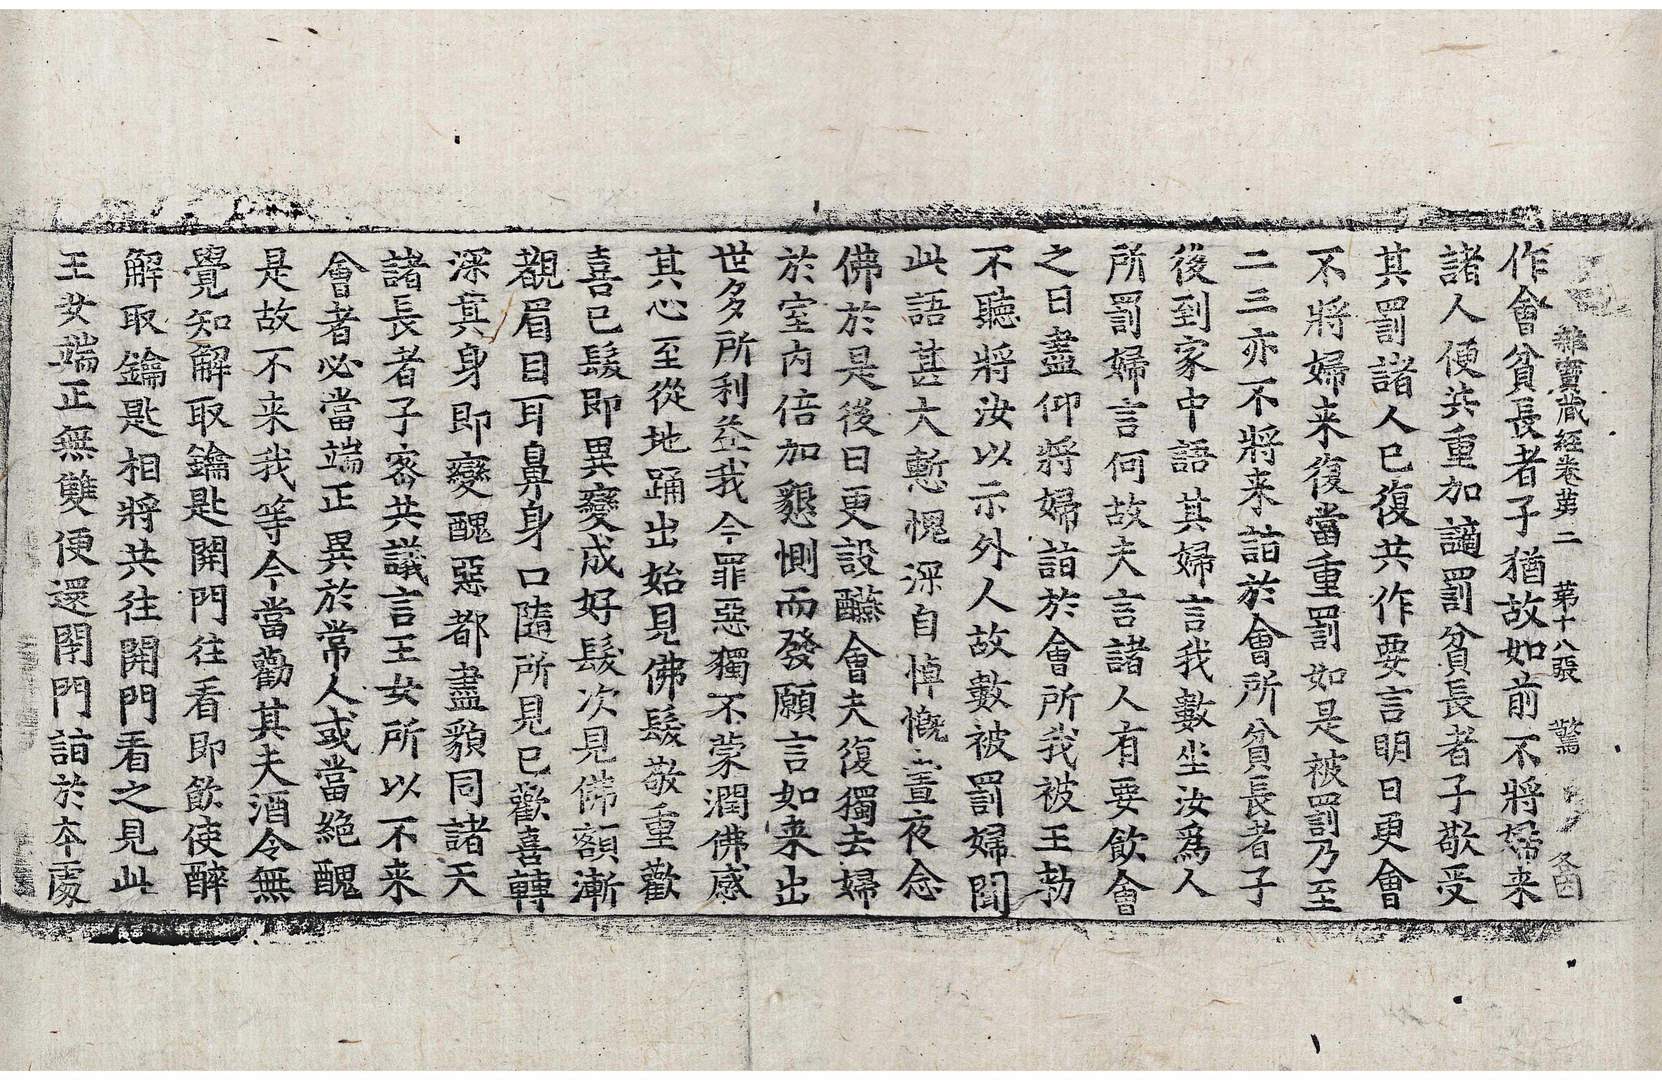 雜寶藏經卷苐二　苐十八張　驚
作會貧長者子猶故如前不將婦来
諸人便共重加讁罰貧長者子敬受
其罰諸人已復共作要言明日更會
不將婦来復當重罰如是被罰乃至
二三亦不將来詣於會所貧長者子
後到家中語其婦言我數坐汝爲人
所罰婦言何故夫言諸人有要飲會
之日盡仰將婦詣於會所我被王勑
不聽將汝以示外人故數被罰婦聞
此語甚大慙愧深自悼慨晝夜念
佛於是後日更設醼會夫復獨去婦
於室内倍加懇惻而發願言如来出
世多所利益我今罪惡獨不蒙潤佛感
其心至從地踊出始見佛髮敬重歡
喜已髮即異變成好髮次見佛額漸
觀眉目耳鼻身口隨所見已歡喜轉
深其身即變醜惡都盡貌同諸天
諸長者子密共議言王女所以不来
會者必當端正異於常人或當絕醜
是故不来我等今當勸其夫酒令無
覺知解取鑰匙開門往看即飲使醉
解取鑰匙相將共往開門看之見此
王女端正無雙便還閇門詣於本處